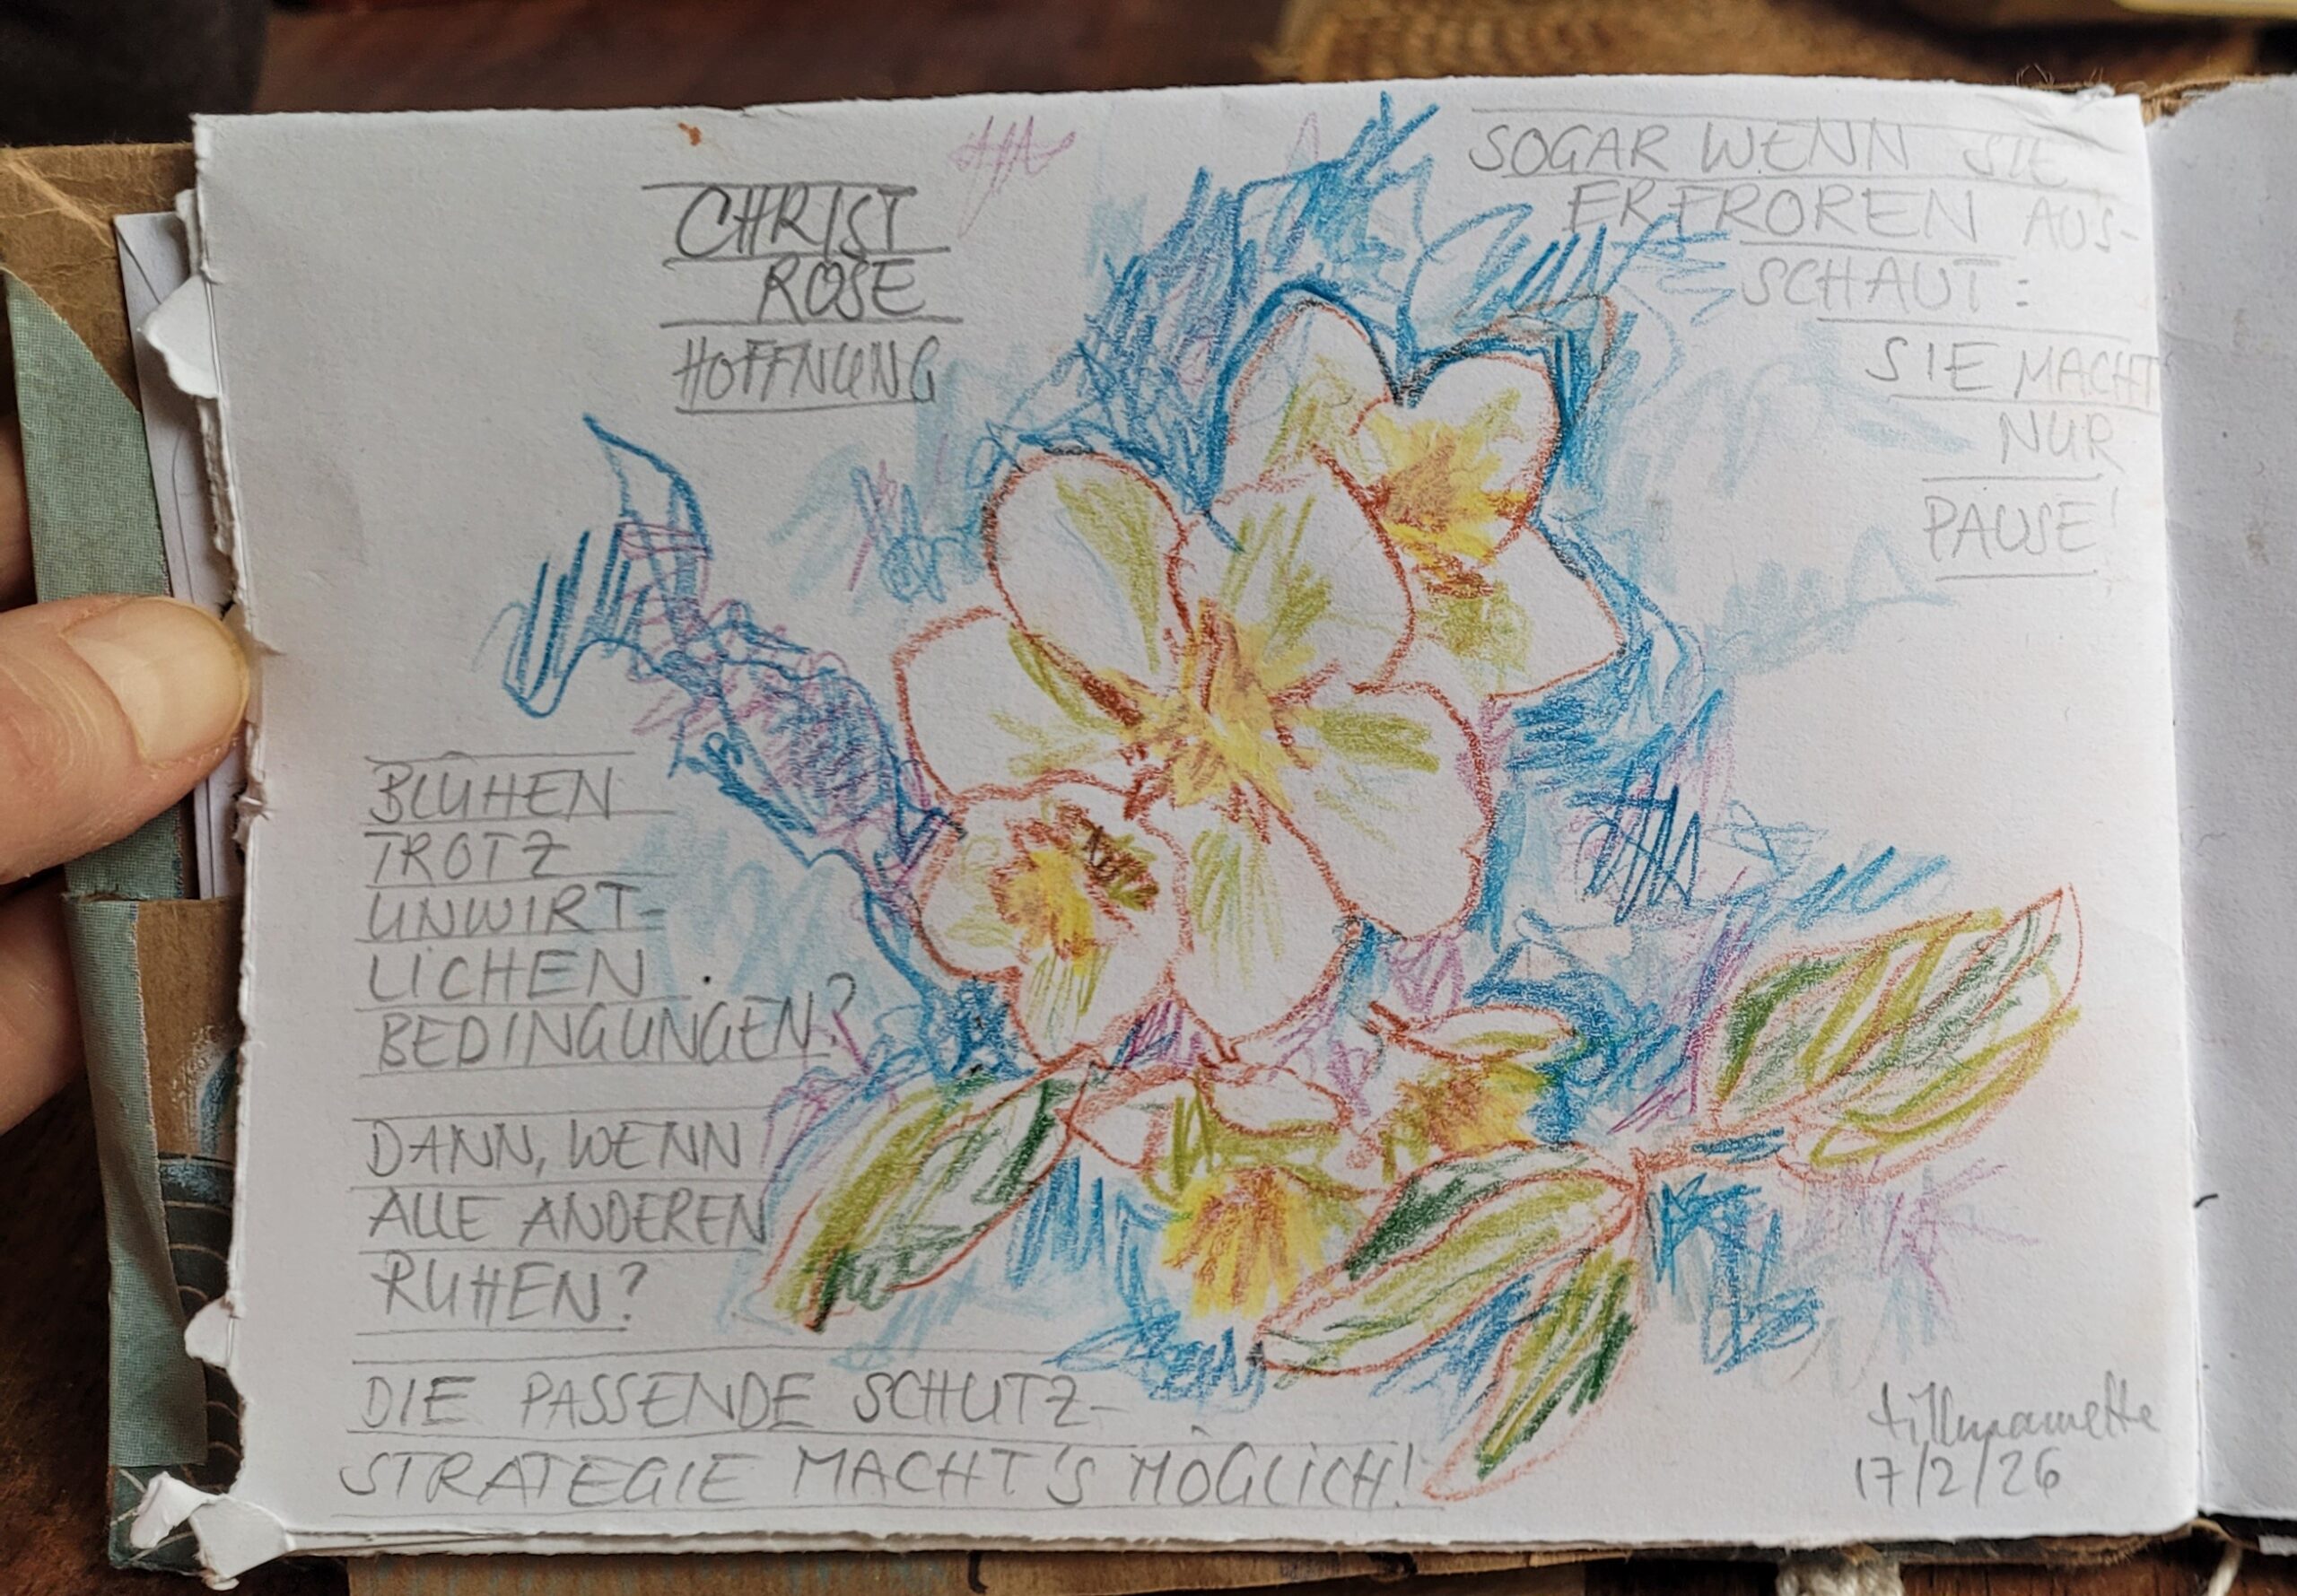 CHRIST
ROSE
HOFFNUNG
SOGAR WENN SIE
ERFROREN AUS-
SCHAUT:
SIE MACHT
NUR
PAUSE!
BLÜHEN
TROTZ
UNWIRT-
LICHEN
BEDINGUNGEN?
DANN, WENN
ALLE ANDEREN
RUHEN?
DIE PASSENDE SCHUTZ-
STRATEGIE MACHT'S MÖGLICH!
17/2/26